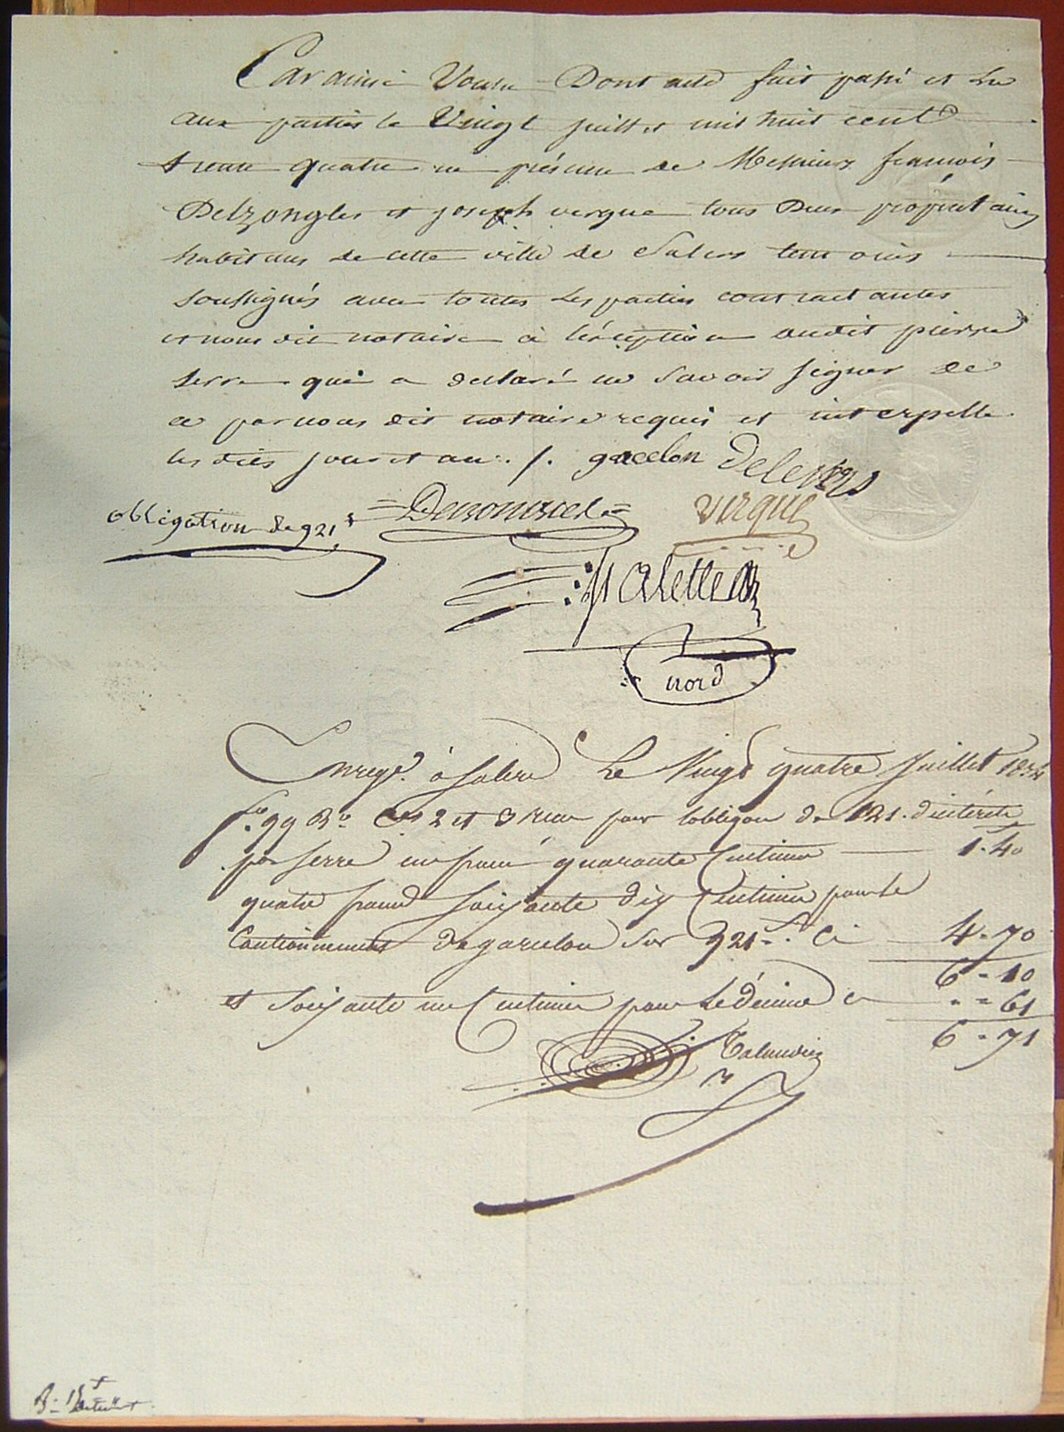 Car ainsi Voulu Dont acte fait passé et Lu
aux parties le Vingt juillet mil huit cent
trente quatre en présence de Messieurs françois
Delzongles et joseph vergne tous Deux propriétaires
habitans de cette ville de Salers temoins
soussignés avec toutes Les parties contractantes
et nous dit notaire à l'éxception dudit pierre
Serre qui a declaré ne Savoir signer de
ce par nous dit notaire requis et interpellé
les dits jour et an ./. gacelon
obligation de 921 f
vergne
nord
Enregé. à Salers Le Vingt quatre Juillet 1834
fo. 99 Ro. Ces 2 et 3 recu pour lobligon de 121. d'intérêts
par Serre un franc quarante Centimes 1-40
quatre francs Soixante dix Centimes pour le
Cautionnement de gacelon Sur 921 f. Ci 4-70
6-10
et Soixante un Centimes pour Le décime ci "-61
6-71